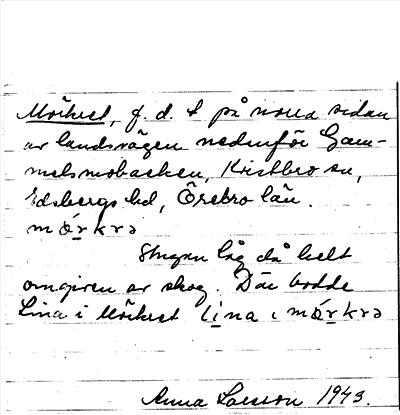 Mörkret, f. d. t på norra sidan
av landsvägen nedenför Gam-
melsmobacken, Kvistbro sn,
Edsbergs hd, Örebro län.
mǿrkrə
Stugan låg då helt
omgiven av skog. Där bodde
Lina i Mörkret lina ı mǿrkrə
Anna Larsson 1943.